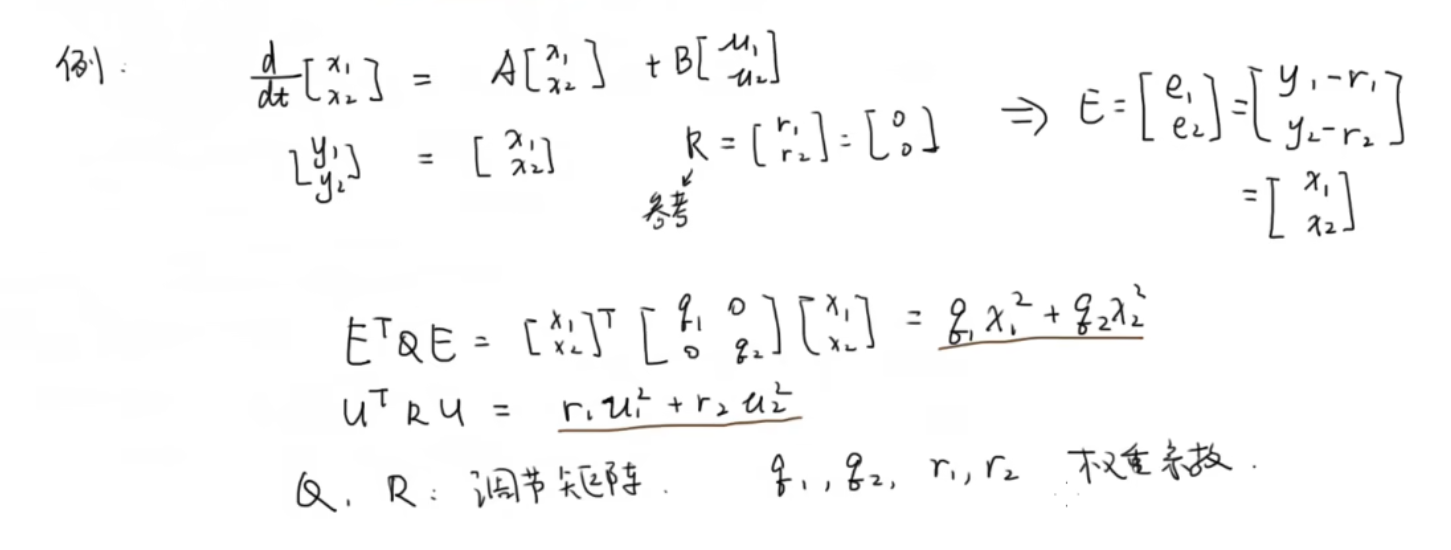 例:
d/dt [x₁ x₂] = A [x₁ x₂] + B [u₁ u₂]
[y₁ y₂] = [x₁ x₂]   R = [r₁ r₂] = [0 0]   ⇒   E = [e₁ e₂] = [y₁-r₁ y₂-r₂]
参考
= [x₁ x₂]
EᵀQE = [x₁ x₂]ᵀ [q₁ 0 0 q₂] [x₁ x₂] = q₁x₁² + q₂x₂²
uᵀRu = r₁u₁² + r₂u₂²
Q, R: 调节矩阵. q₁, q₂, r₁, r₂ 权重系数.